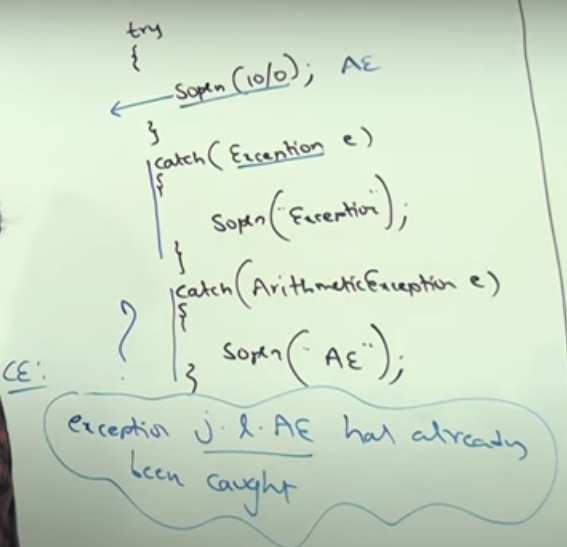 try
{
Sopln(10/0); AE
}
catch(Exception e)
{
Sopln("Exception");
}
catch(ArithmeticException e)
{
? Sopln("AE");
CE: }
exception j.l.AE has already
been caught